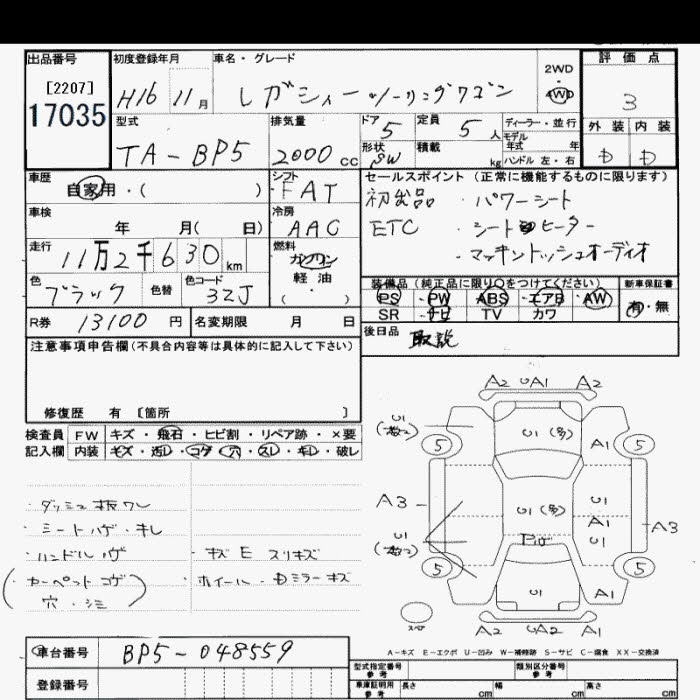 出品番号 初度登録年月 車名・グレード 2WD 評価点
[2207] H16 11月 レガシィーツーリングワゴン ・4WD 3
17035 型式 排気量 ドア 定員 ディーラー・並行 外装 内装
TA-BP5 2000cc 5 5人 モデル年式 年 D D
形状 SW 積載 kg ハンドル 左・右
車歴 シフト セールスポイント(正常に機能するものに限ります)
自家用・( ) FAT 初出品 ・パワーシート
車検 冷房 ETC ・シートヒーター
年 月( 日) AAC ・マッキントッシュオーディオ
走行 燃料
11万2千630km ガソリン
軽油
・( )
色 色替 色コード 装備品(純正品に限り○をつけてください) 新車保証書
ブラック 32J PS ・PW ABS ・エアB AW 有・無
SR ・ナビ TV カワ
R券 13100円 名変期限 月 日 後日品 取説
注意事項申告欄(不具合内容等は具体的に記入して下さい)
修復歴 有 〔箇所 〕
検査員 FW キズ・飛石・ヒビ割・リペア跡・×要
記入欄 内装 キズ・汚レ・コゲ・穴・スレ・キレ・破レ
・ダッシュ板ワレ
・シートハゲ・キレ
・ハンドルハゲ ・キズE スリキズ
(カーペットコゲ) ・ホイール・Dミラーキズ
穴・シミ
A2 UA1 A2
U1 U1(多) A1
5 5
A3 U1(多) U1
A1 A3
U1 U1
5 5
U1 A1
スペア A2 A1
A-キズ E-エクボ U-凹み W-補修跡 S-サビ C-腐食 XX-交換済
車台番号 BP5-048559
登録番号 型式指定番号 類別区分番号
車庫証明用参考 長さ cm 幅 cm 高さ cm